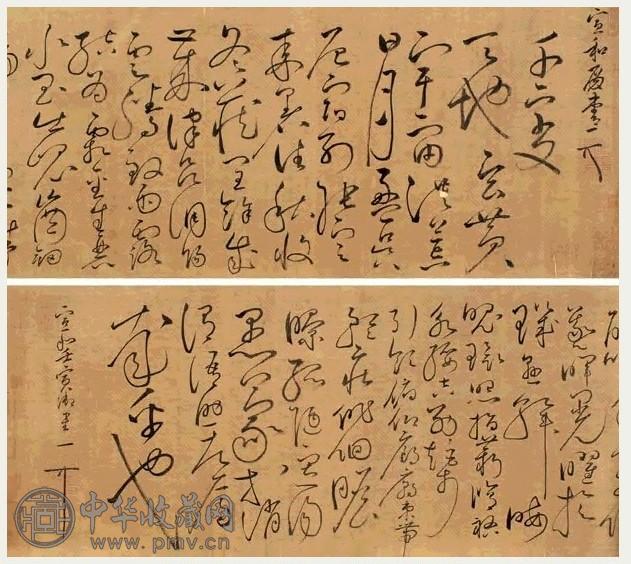 宣和殿書一
千字文
天地玄黃
宇宙洪荒
日月盈昃
辰宿列張寒
來暑往秋收
冬藏閏餘成
歲律呂調陽
雲騰致雨露
結為霜金生麗
水玉出崑岡劍
羲暉晃曜旋
璣懸斡晦
魄環照指薪脩祜
永綏吉劭矩步
引領俯仰廊廟束帶
矜莊徘徊瞻
眺孤陋寡聞
愚蒙等誚
謂語助者焉
哉乎也
宣和壬寅御書一
中华收藏网
www.pmv.cn